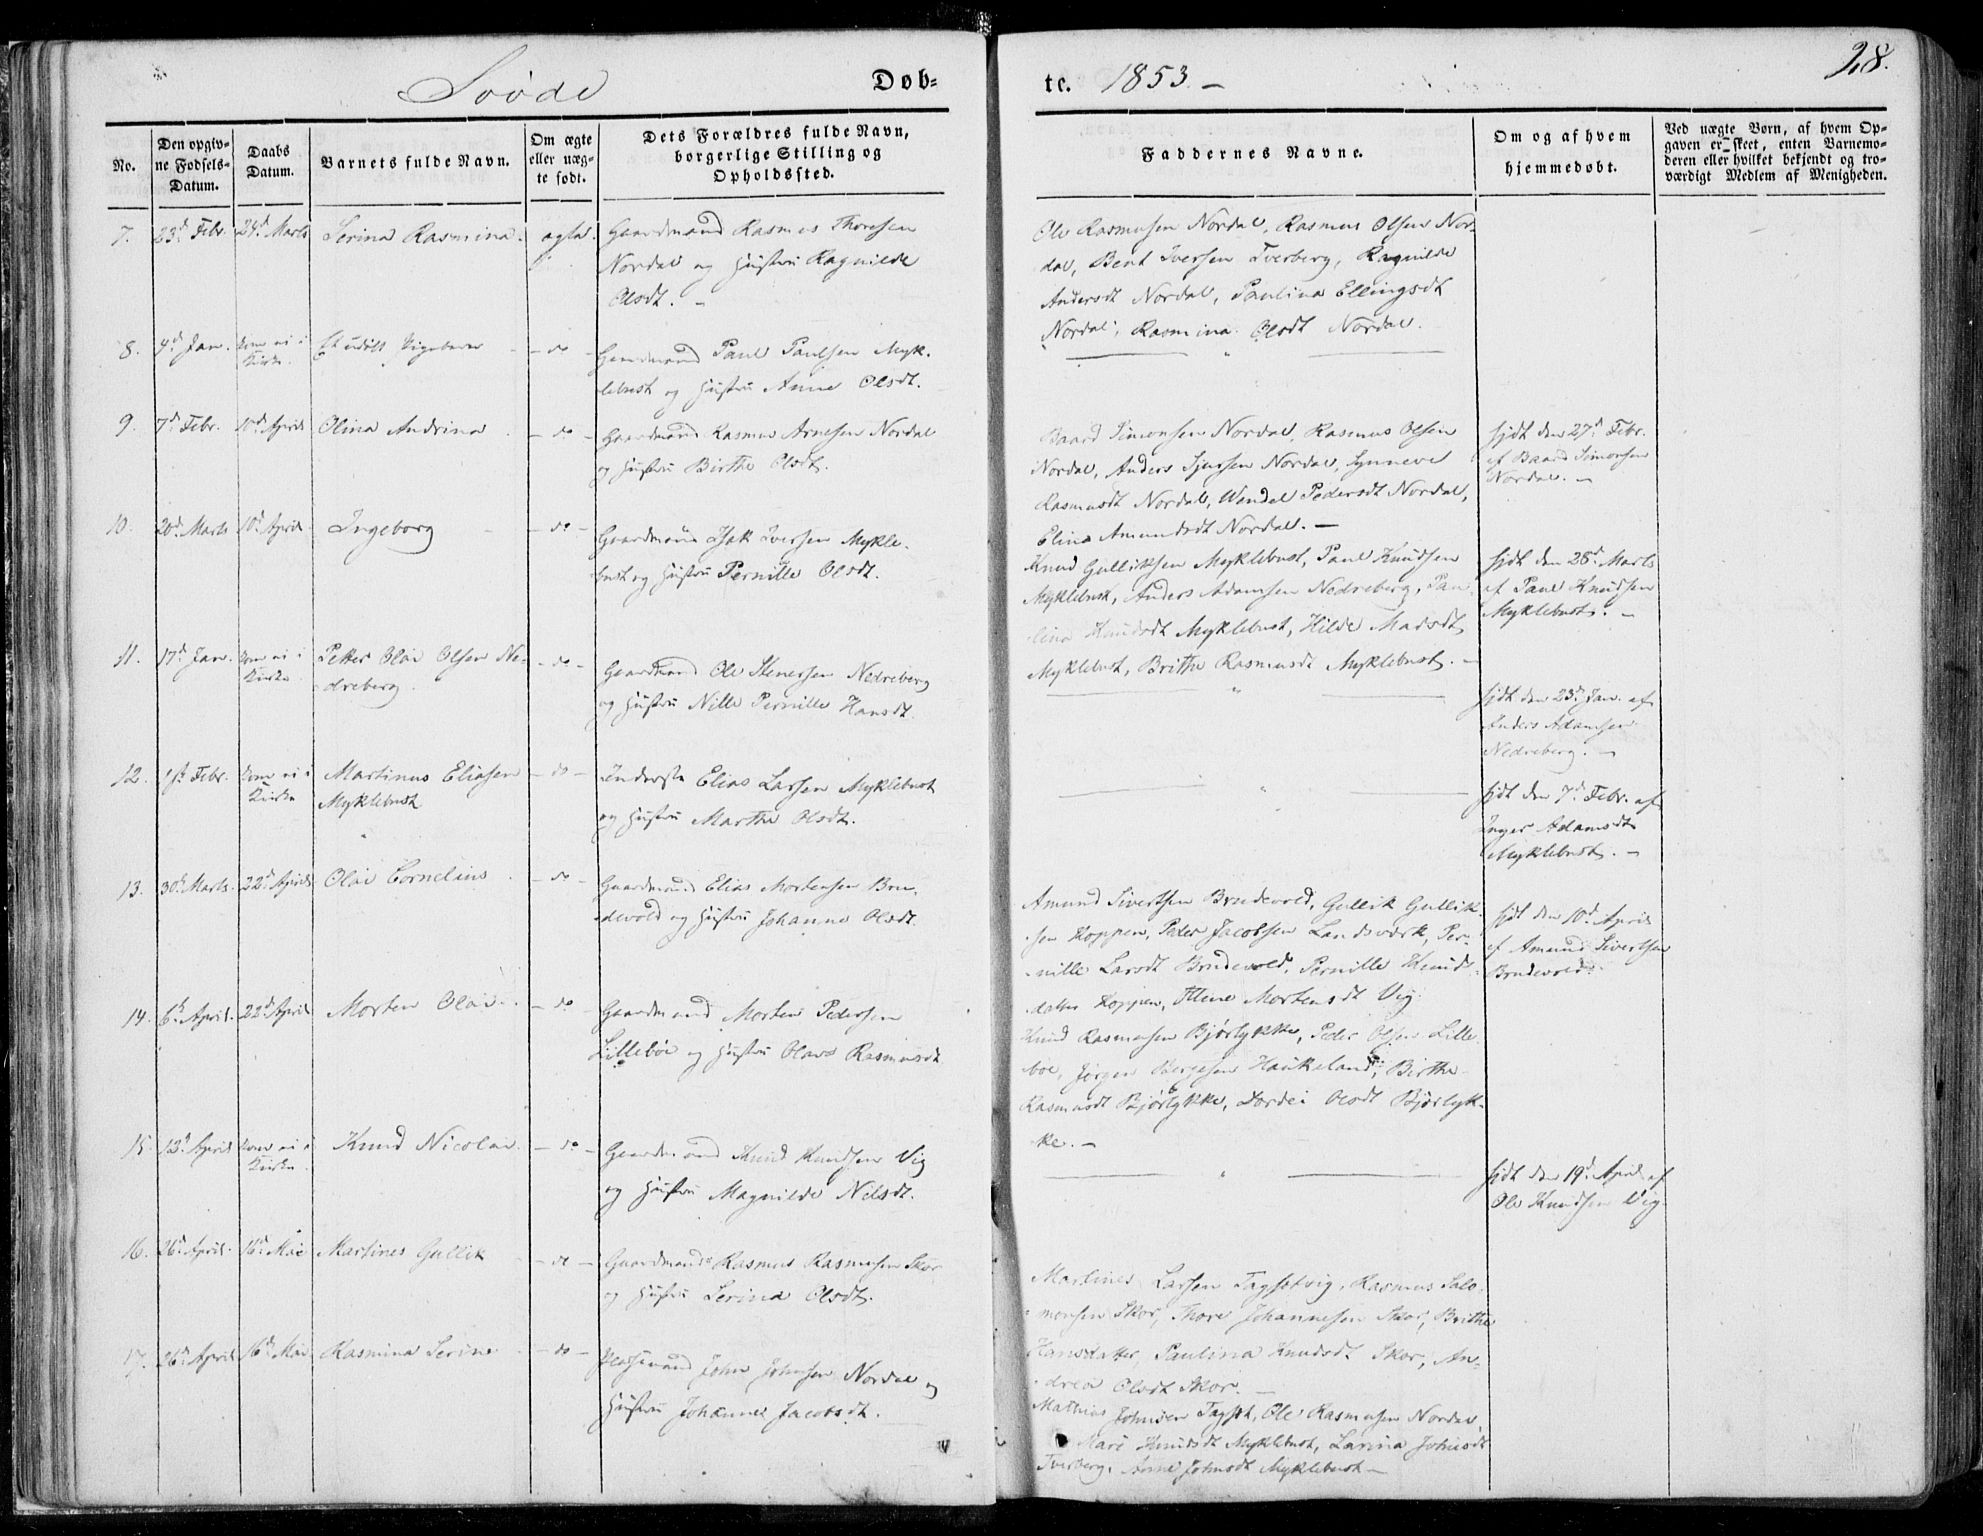 28.
Søvde Døb=
te. 1853. –
No.
Den opgiv-
ne Fødsels-
Datum.
Daabs
Datum.
Barnets fulde Navn.
Om ægte
eller uæg-
te født.
Dets Forældres fulde Navn,
borgerlige Stilling og
Opholdssted.
Faddernes Navne.
Om og af hvem
hjemmedøbt.
Ved uægte Børn, af hvem Op-
gaven er skeet, enten Barnemo-
deren eller hvilket bekjendt og tro-
værdigt Medlem af Menigheden.
7. 23d Febr. 24d Marts Serina Rasmina. ægte. Gaardmand Rasmus Thoresen
Nordal og Hustru Ragnilde
Olsdt. –
Ole Rasmusen Nordal, Rasmus Olsen Nor-
dal, Bent Iversen Tverberg, Ragnilde
Andersdt Nordal, Paulina Ellingsdt
Nordal, Rasmina Olsdt Nordal.
8. 4d Jan. kom ei i
Kirke. Et udøbt Pigebarn – do – Gaardmand Paul Paulsen Myk-
lebust og Hustru Anne Olsdt.
9. 7d Febr. 10d April Olina Andrina – do – Gaardmand Rasmus Arnesen Nordal
og Hustru Birthe Olsdt.
Baard Simonsen Nordal, Rasmus Olsen
Nordal, Anders Sjursen Nordal, Synneve
Rasmusdt Nordal, Wendel Pedersdt Nordal,
Elina Amundsdt Nordal. –
hjdt den 27d Febr.
af Baard Simonsen
Nordal. –
10. 20d Marts 10d April Ingeborg – do – Gaardmand Isak Iversen Mykle-
bust og Hustru Pernille Olsdt.
Knud Gulliksen Myklebust, Paul Knudsen
Myklebust, Anders Adamsen Nedreberg, Pau-
lina Knudsdt Myklebust, Hilde Madsdt
Myklebust, Brithe Rasmusdt Myklebust. –
hjdt den 28d Marts
af Paul Knudsen
Myklebust. –
11. 17d Jan. kom ei i
Kirke Petter Olai Olsen Ne-
dreberg. – do – Gaardmand Ole Stenersen Nedreberg
og Hustru Nille Pernille Hansdt.
hjdt den 23d Jan. af
Anders Adamsen
Nedreberg. –
12. 1st Febr. kom ei i
Kirke Martinus Eliasen
Myklebust – do – Inderste Elias Larsen Myklebust
og Hustru Marthe Olsdt.
hjdt den 7d Febr. af
Inger Adamsdt
Myklebust. –
13. 30d Marts. 22d April Olai Cornelius – do – Gaardmand Elias Mortensen Bru-
devold og Hustru Johanne Olsdt.
Amund Sivertsen Brudevold, Gullik Gullik-
sen Koppen, Peder Jacobsen Landsværk, Per-
nille Larsdt Brudevold, Pernille Knuds-
datter Koppen, Eline Mortensdt Vig.
hjdt den 10d April
af Amund Sivertsen
Brudevold.
14. 6d April. 22d April Morten Olai – do – Gaardmand Morten Pedersen
Lillebøe og Hustru Olave Rasmusdt
Knud Rasmusen Bjørlykke, Peder Olsen Lille-
bøe, Jørgen Børgesen Haukeland, Birthe
Rasmusdt Bjørlykke, Dordei Olsdt Bjørlyk-
ke. –
15. 13d April kom ei i
Kirke Knud Nicolai – do – Gaardmand Knud Knudsen Vig
og Hustru Magnilde Nilsdt.
hjdt den 19d April af
Ole Knudsen Vig
16. 26d April. 16d Mai Martines Gullik – do – Gaardmand Rasmus Rasmusen Skor
og Hustru Serina Olsdt.
Martines Larsen Tagsetvig, Rasmus Salo-
monsen Skor, Thore Johannesen Skor, Brithe
Hansdatter, Paulina Knudsdt Skor, An-
drea Olsdt Skor. –
17. 26d April 16d Mai Rasmina Serine – do – Pladsmand John Johnsen Nordal og
Hustru Johanne Jacobsdt.
Mathias Johnsen Tagset, Ole Rasmusen Nordal,
Mari Knudsdt Myklebust, Larina Johnsdt
Tverberg, Anne Johnsdt Myklebust –